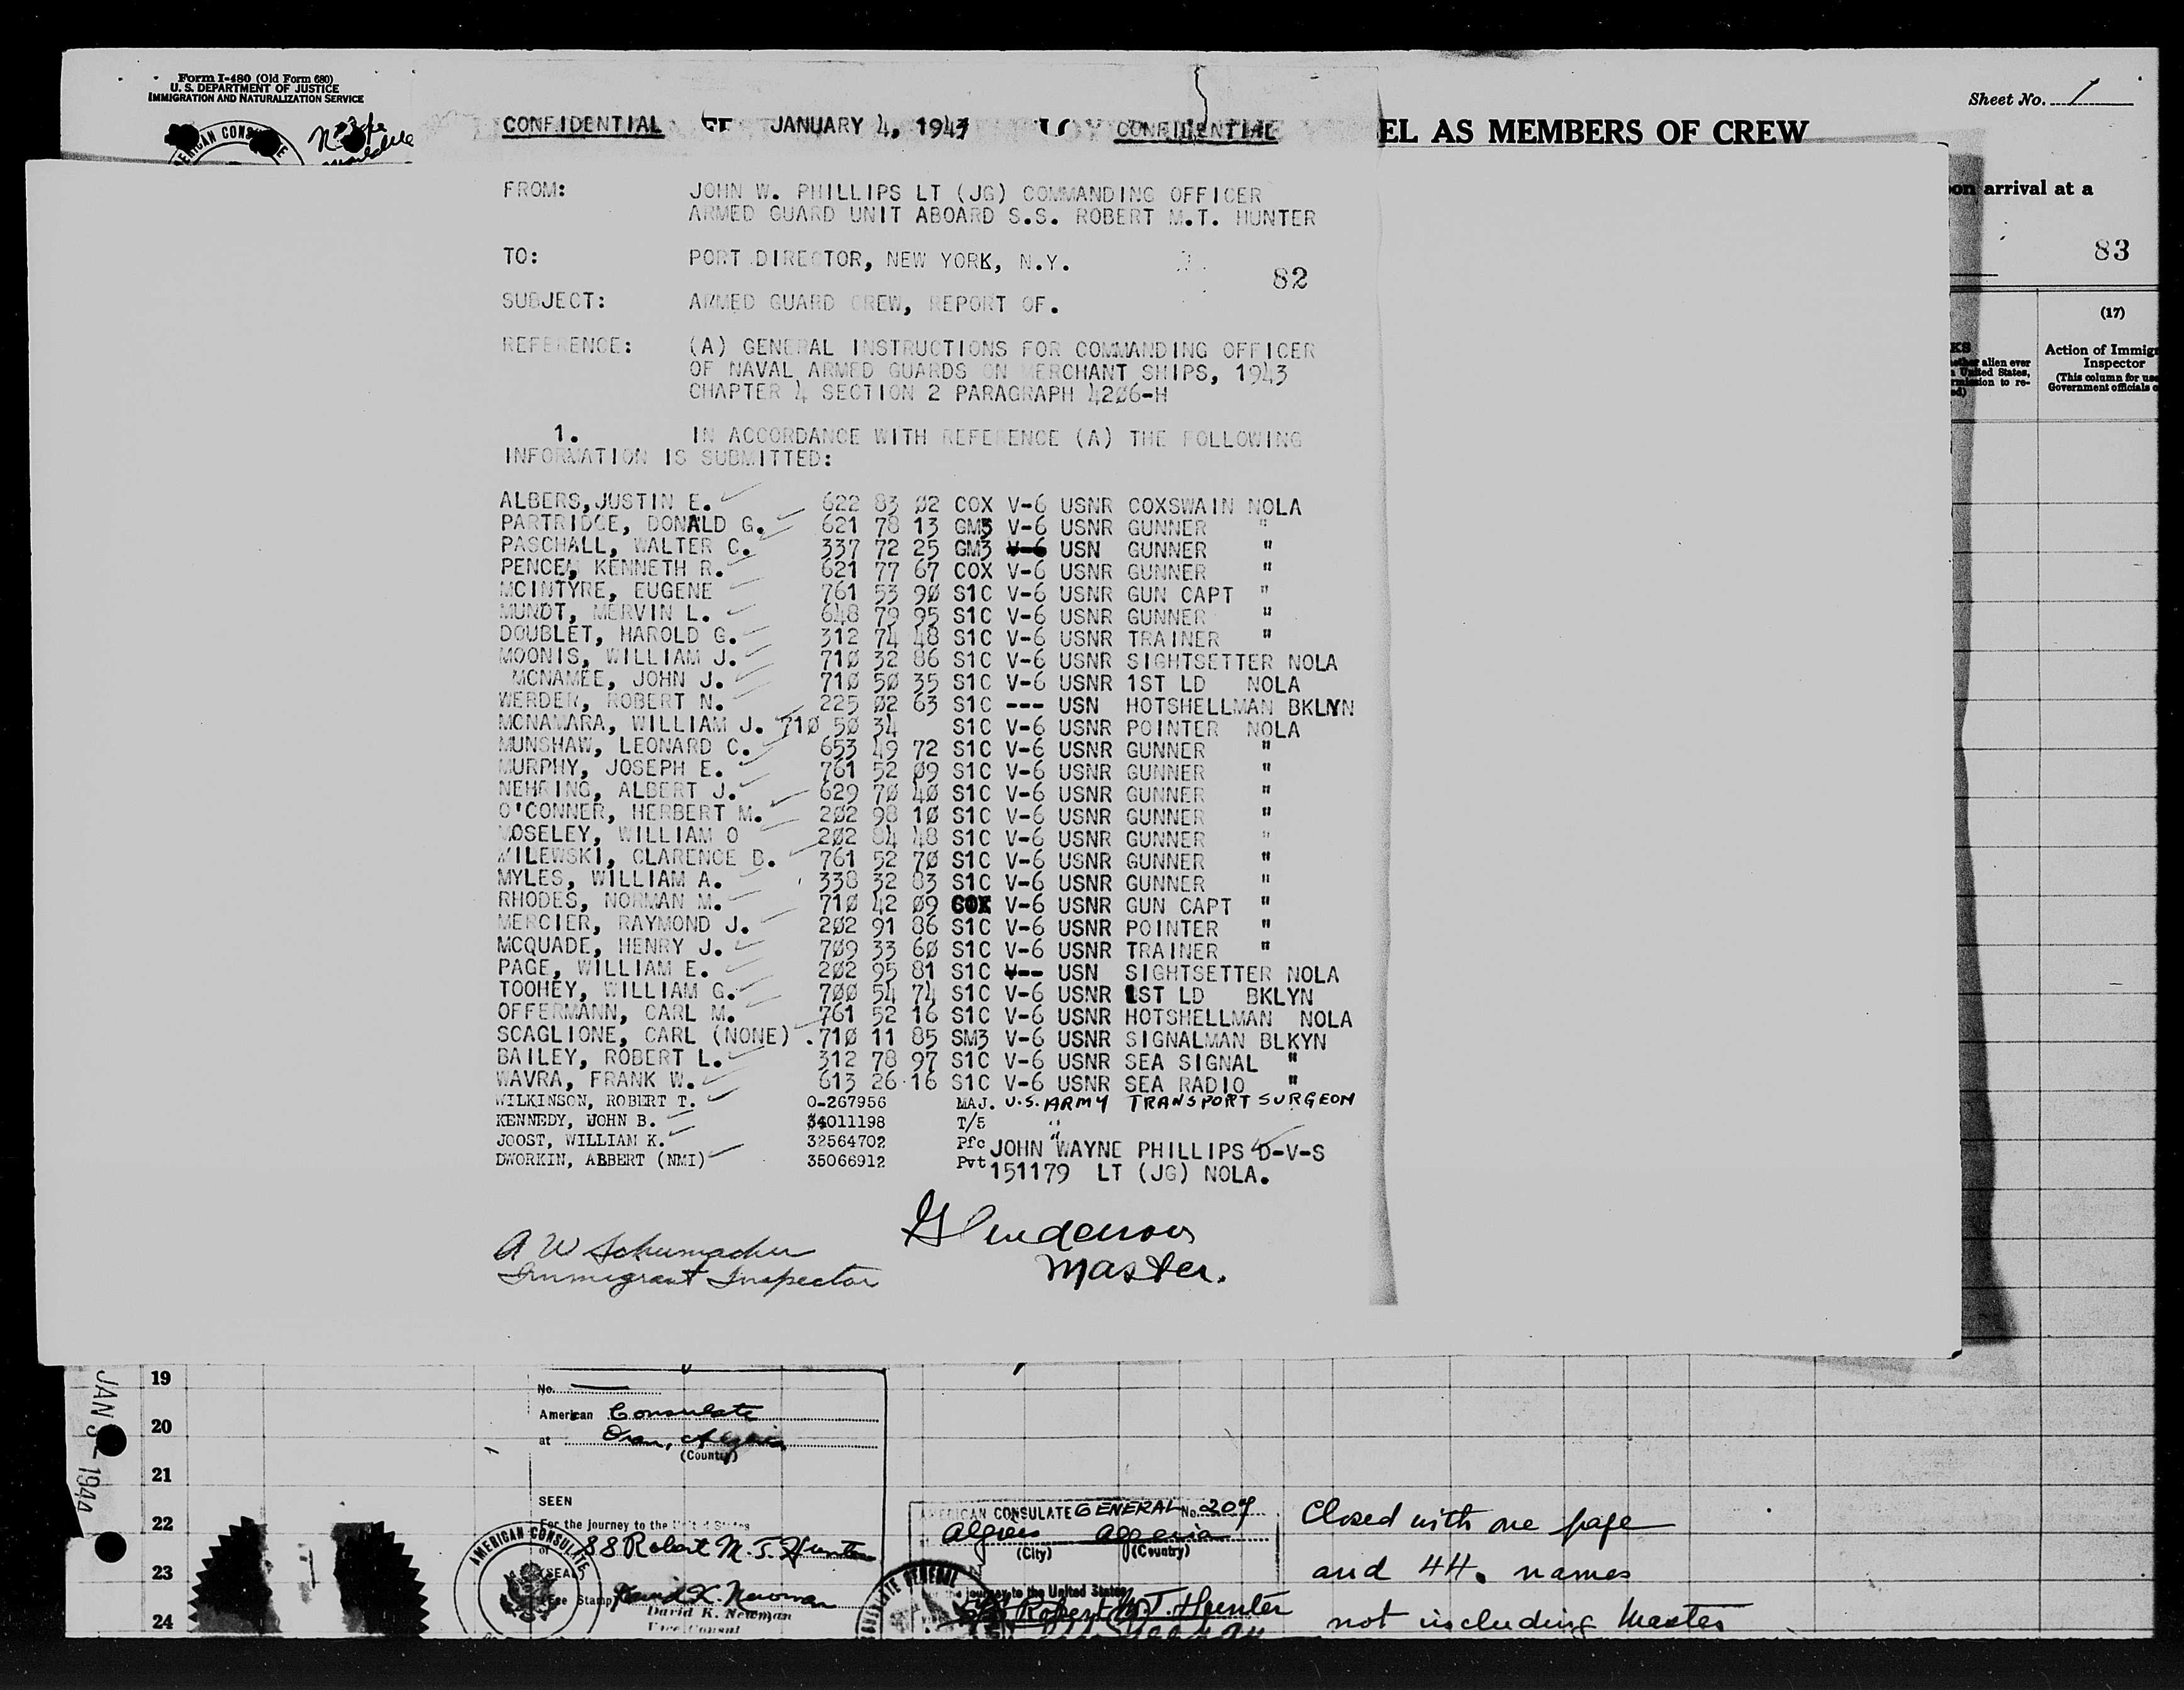 Form I-480 (Old Form 680)
U. S. DEPARTMENT OF JUSTICE
IMMIGRATION AND NATURALIZATION SERVICE
Sheet No. 1
CONFIDENTIAL JANUARY 4, 1943 CONFIDENTIAL
EL AS MEMBERS OF CREW
on arrival at a
83
FROM: JOHN W. PHILLIPS LT (JG) COMMANDING OFFICER
ARMED GUARD UNIT ABOARD S.S. ROBERT M.T. HUNTER
TO: PORT DIRECTOR, NEW YORK, N.Y.
82
SUBJECT: ARMED GUARD CREW, REPORT OF.
REFERENCE: (A) GENERAL INSTRUCTIONS FOR COMMANDING OFFICER
OF NAVAL ARMED GUARDS ON MERCHANT SHIPS, 1943
CHAPTER 4 SECTION 2 PARAGRAPH 42Ø6-H
1. IN ACCORDANCE WITH REFERENCE (A) THE FOLLOWING
INFORMATION IS SUBMITTED:
ALBERS,JUSTIN E. 622 83 Ø2 COX V-6 USNR COXSWAIN NOLA
PARTRIDGE, DONALD G. 621 78 13 GM3 V-6 USNR GUNNER "
PASCHALL, WALTER C. 337 72 25 GM3 V-6 USN GUNNER "
PENCE, KENNETH R. 621 77 67 COX V-6 USNR GUNNER "
MCINTYRE, EUGENE 761 53 9Ø S1C V-6 USNR GUN CAPT "
MUNDT, MERVIN L. 648 79 95 S1C V-6 USNR GUNNER "
DOUBLET, HAROLD G. 312 74 48 S1C V-6 USNR TRAINER "
MOONIS, WILLIAM J. 71Ø 32 86 S1C V-6 USNR SIGHTSETTER NOLA
MCNAMEE, JOHN J. 71Ø 5Ø 35 S1C V-6 USNR 1ST LD NOLA
WERDER, ROBERT N. 225 Ø2 63 S1C --- USN HOTSHELLMAN BKLNYN
MCNAMARA, WILLIAM J. 71Ø 5Ø 34 S1C V-6 USNR POINTER NOLA
MUNSHAW, LEONARD C. 653 49 72 S1C V-6 USNR GUNNER "
MURPHY, JOSEPH E. 761 52 Ø9 S1C V-6 USNR GUNNER "
NEHRING, ALBERT J. 629 7Ø 4Ø S1C V-6 USNR GUNNER "
O'CONNER, HERBERT M. 2Ø2 98 1Ø S1C V-6 USNR GUNNER "
MOSELEY, WILLIAM O 2Ø2 84 48 S1C V-6 USNR GUNNER "
MILEWSKI, CLARENCE B. 761 52 7Ø S1C V-6 USNR GUNNER "
MYLES, WILLIAM A. 338 32 83 S1C V-6 USNR GUNNER "
RHODES, NORMAN M. 71Ø 42 Ø9 COX V-6 USNR GUN CAPT "
MERCIER, RAYMOND J. 2Ø2 91 86 S1C V-6 USNR POINTER "
MCQUADE, HENRY J. 7Ø9 33 6Ø S1C V-6 USNR TRAINER "
PAGE, WILLIAM E. 2Ø2 95 81 S1C V-- USN SIGHTSETTER NOLA
TOOHEY, WILLIAM G. 7ØØ 54 74 S1C V-6 USNR 1ST LD BKLYN
OFFERMANN, CARL M. 761 52 16 S1C V-6 USNR HOTSHELLMAN NOLA
SCAGLIONE, CARL (NONE) .71Ø 11 85 SM3 V-6 USNR SIGNALMAN BLKYN
BAILEY, ROBERT L. 312 78 97 S1C V-6 USNR SEA SIGNAL "
WAVRA, FRANK W. 613 26 16 S1C V-6 USNR SEA RADIO "
WILKINSON, ROBERT T. O-267956 MAJ. U.S. ARMY TRANSPORT SURGEON
KENNEDY, JOHN B. 34011198 T/5 "
JOOST, WILLIAM K. 32564702 Pfc "
DWORKIN, ABBERT (NMI) 35066912 Pvt
JOHN WAYNE PHILLIPS D-V-S
151179 LT (JG) NOLA.
A W Schumacher
Immigrant Inspector
Master.
(17)
KS
alien ever
United States,
mission to re-
Action of Immig
Inspector
(This column for use
Government officials o
JAN 3 - 1944
19
20
21
22
23
24
No.
American Consulate
at Oran, Algeria
(Country)
SEEN
For the journey to the United States
SS Robert M. T. Hunter
AMERICAN CONSULATE
(SEAL)
(Fee Stamp)
David K. Newman
David K. Newman
Vice Consul
AMERICAN CONSULATE GENERAL No. 207
Algiers Algeria
(City) (Country)
journey to the United States
SS Robert M. T. Hunter
Closed with one page
and 44. names
not including Master